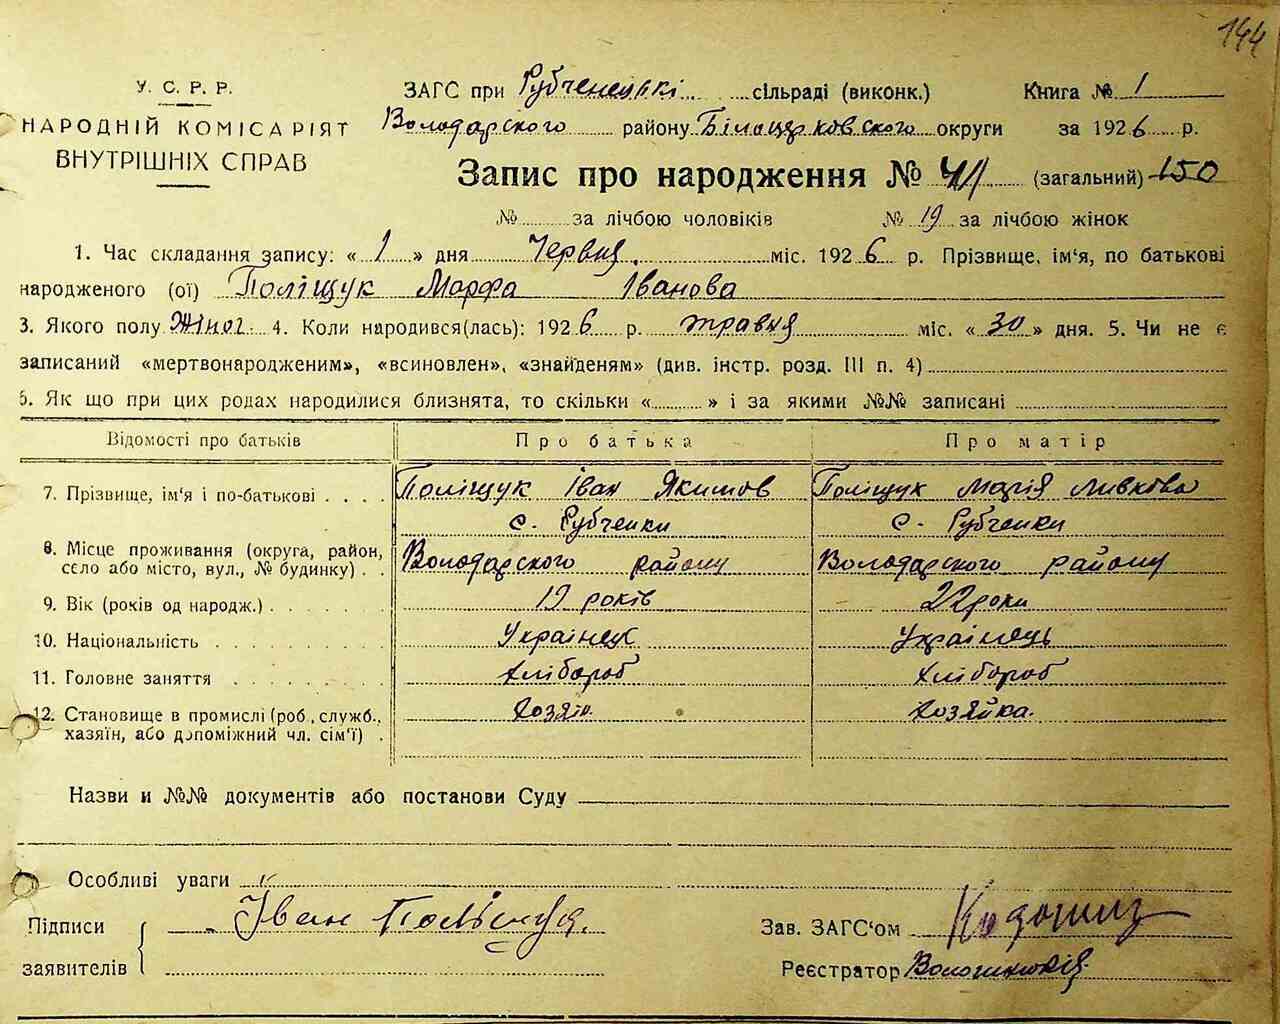 144
У. С. Р. Р.
НАРОДНІЙ КОМІСАРІЯТ
ВНУТРІШНІХ СПРАВ
ЗАГС при Рубченецькі сільраді (виконк.) Книга № 1
Володарского району Білоцерковского округи за 1926 р.
Запис про народження № 41 (загальний) 150
№ за лічбою чоловіків № 19 за лічбою жінок
1. Час складання запису: « 1 » дня Червня міс. 1926 р. Прізвище, ім'я, по батькові
народженого (ої) Поліщук Марфа Іванова
3. Якого полу Жіноч. 4. Коли народився(лась): 1926 р. травня міс. « 30 » дня. 5. Чи не є
записаний «мертвонародженим», «всиновлен», «знайденям» (див. інстр. розд. III п. 4)
6. Як що при цих родах народилися близнята, то скільки « » і за якими №№ записані
Відомості про батьків Про батька Про матір
7. Прізвище, ім'я і по-батькові Поліщук Іван Якимов Поліщук Марія
с. Рубченки с. Рубченки
8. Місце проживання (округа, район, село або місто, вул., № будинку) Володарского району Володарского району
9. Вік (років од народж.) 19 років 22 роки
10. Національність Українец Українець
11. Головне заняття хлібороб хлібороб
12. Становище в промислі (роб., служб., хазяїн, або допоміжний чл. сім'ї) хозяїн хозяйка.
Назви и №№ документів або постанови Суду
Особливі уваги
Підписи Іван Поліщук. Зав. ЗАГС'ом
заявителів Реєстратор